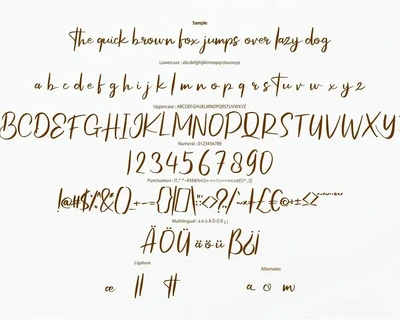 Sample
the quick brown fox jumps over lazy dog
Lowercase : abcdefghijklmnopqrstuvwxyz
a b c d e f g h i j k l m n o p q r s t u v w x y z
Uppercase : ABCDEFGHIJKLMNOPQRSTUVWXYZ
BCDEFGHIJKLMNOPQRSTUVWXY
Numeral : 0123456789
1234567890
Punctuation :
Multilingual : ä ö ü Ä Ö Ü ß ¿ ¡
ÄÖÜ äöü ß¿¡
Ligature
Alternates
æ ll tt
a o m